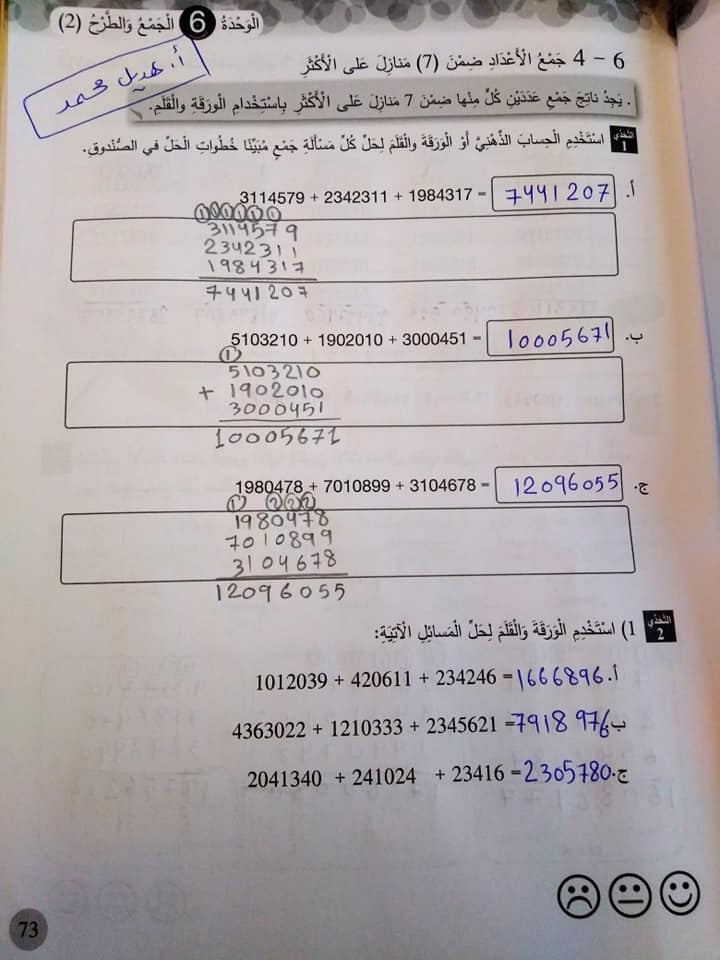 الْوَحْدَةُ 6 الْجَمْعُ وَالطَّرْحُ (2)
أ. هديل محمد
6 – 4 جَمْعُ الْأَعْدَادِ ضِمْنَ (7) مَنازِلَ عَلى الْأَكْثَرِ
. يَجِدُ ناتِجَ جَمْعِ عَدَدَيْنِ كُلٌّ مِنْها ضِمْنَ 7 مَنازِلَ عَلى الْأَكْثَرِ بِاسْتِخْدامِ الْوَرَقَةِ وَالْقَلَمِ.
التَّحَدِّي 1 اسْتَخْدِمِ الْحِسابَ الذِّهْنِيَّ أَوْ الْوَرَقَةَ والْقَلَمَ لِحَلِّ كُلِّ مَسْأَلَةِ جَمْعٍ مُبَيِّنًا خُطُواتِ الْحَلِّ في الصُّنْدوقِ.
أ. 3114579 + 2342311 + 1984317 = 7441207
1 1 1 1 1 1
3114579
2342311
1984317
7441207
ب. 5103210 + 1902010 + 3000451 = 10005671
1
5103210
+ 1902010
3000451
10005671
ج. 1980478 + 7010899 + 3104678 = 12096055
1 2 2 2
1980478
7010899
3104678
12096055
التَّحَدِّي 2 1) اسْتَخْدِمِ الْوَرَقَةَ وَالْقَلَمَ لِحَلِّ الْمَسائِلِ الْآتِيَةِ:
أ. 1012039 + 420611 + 234246 = 1666896
ب. 4363022 + 1210333 + 2345621 = 7918976
ج. 2041340 + 241024 + 23416 = 2305780
73